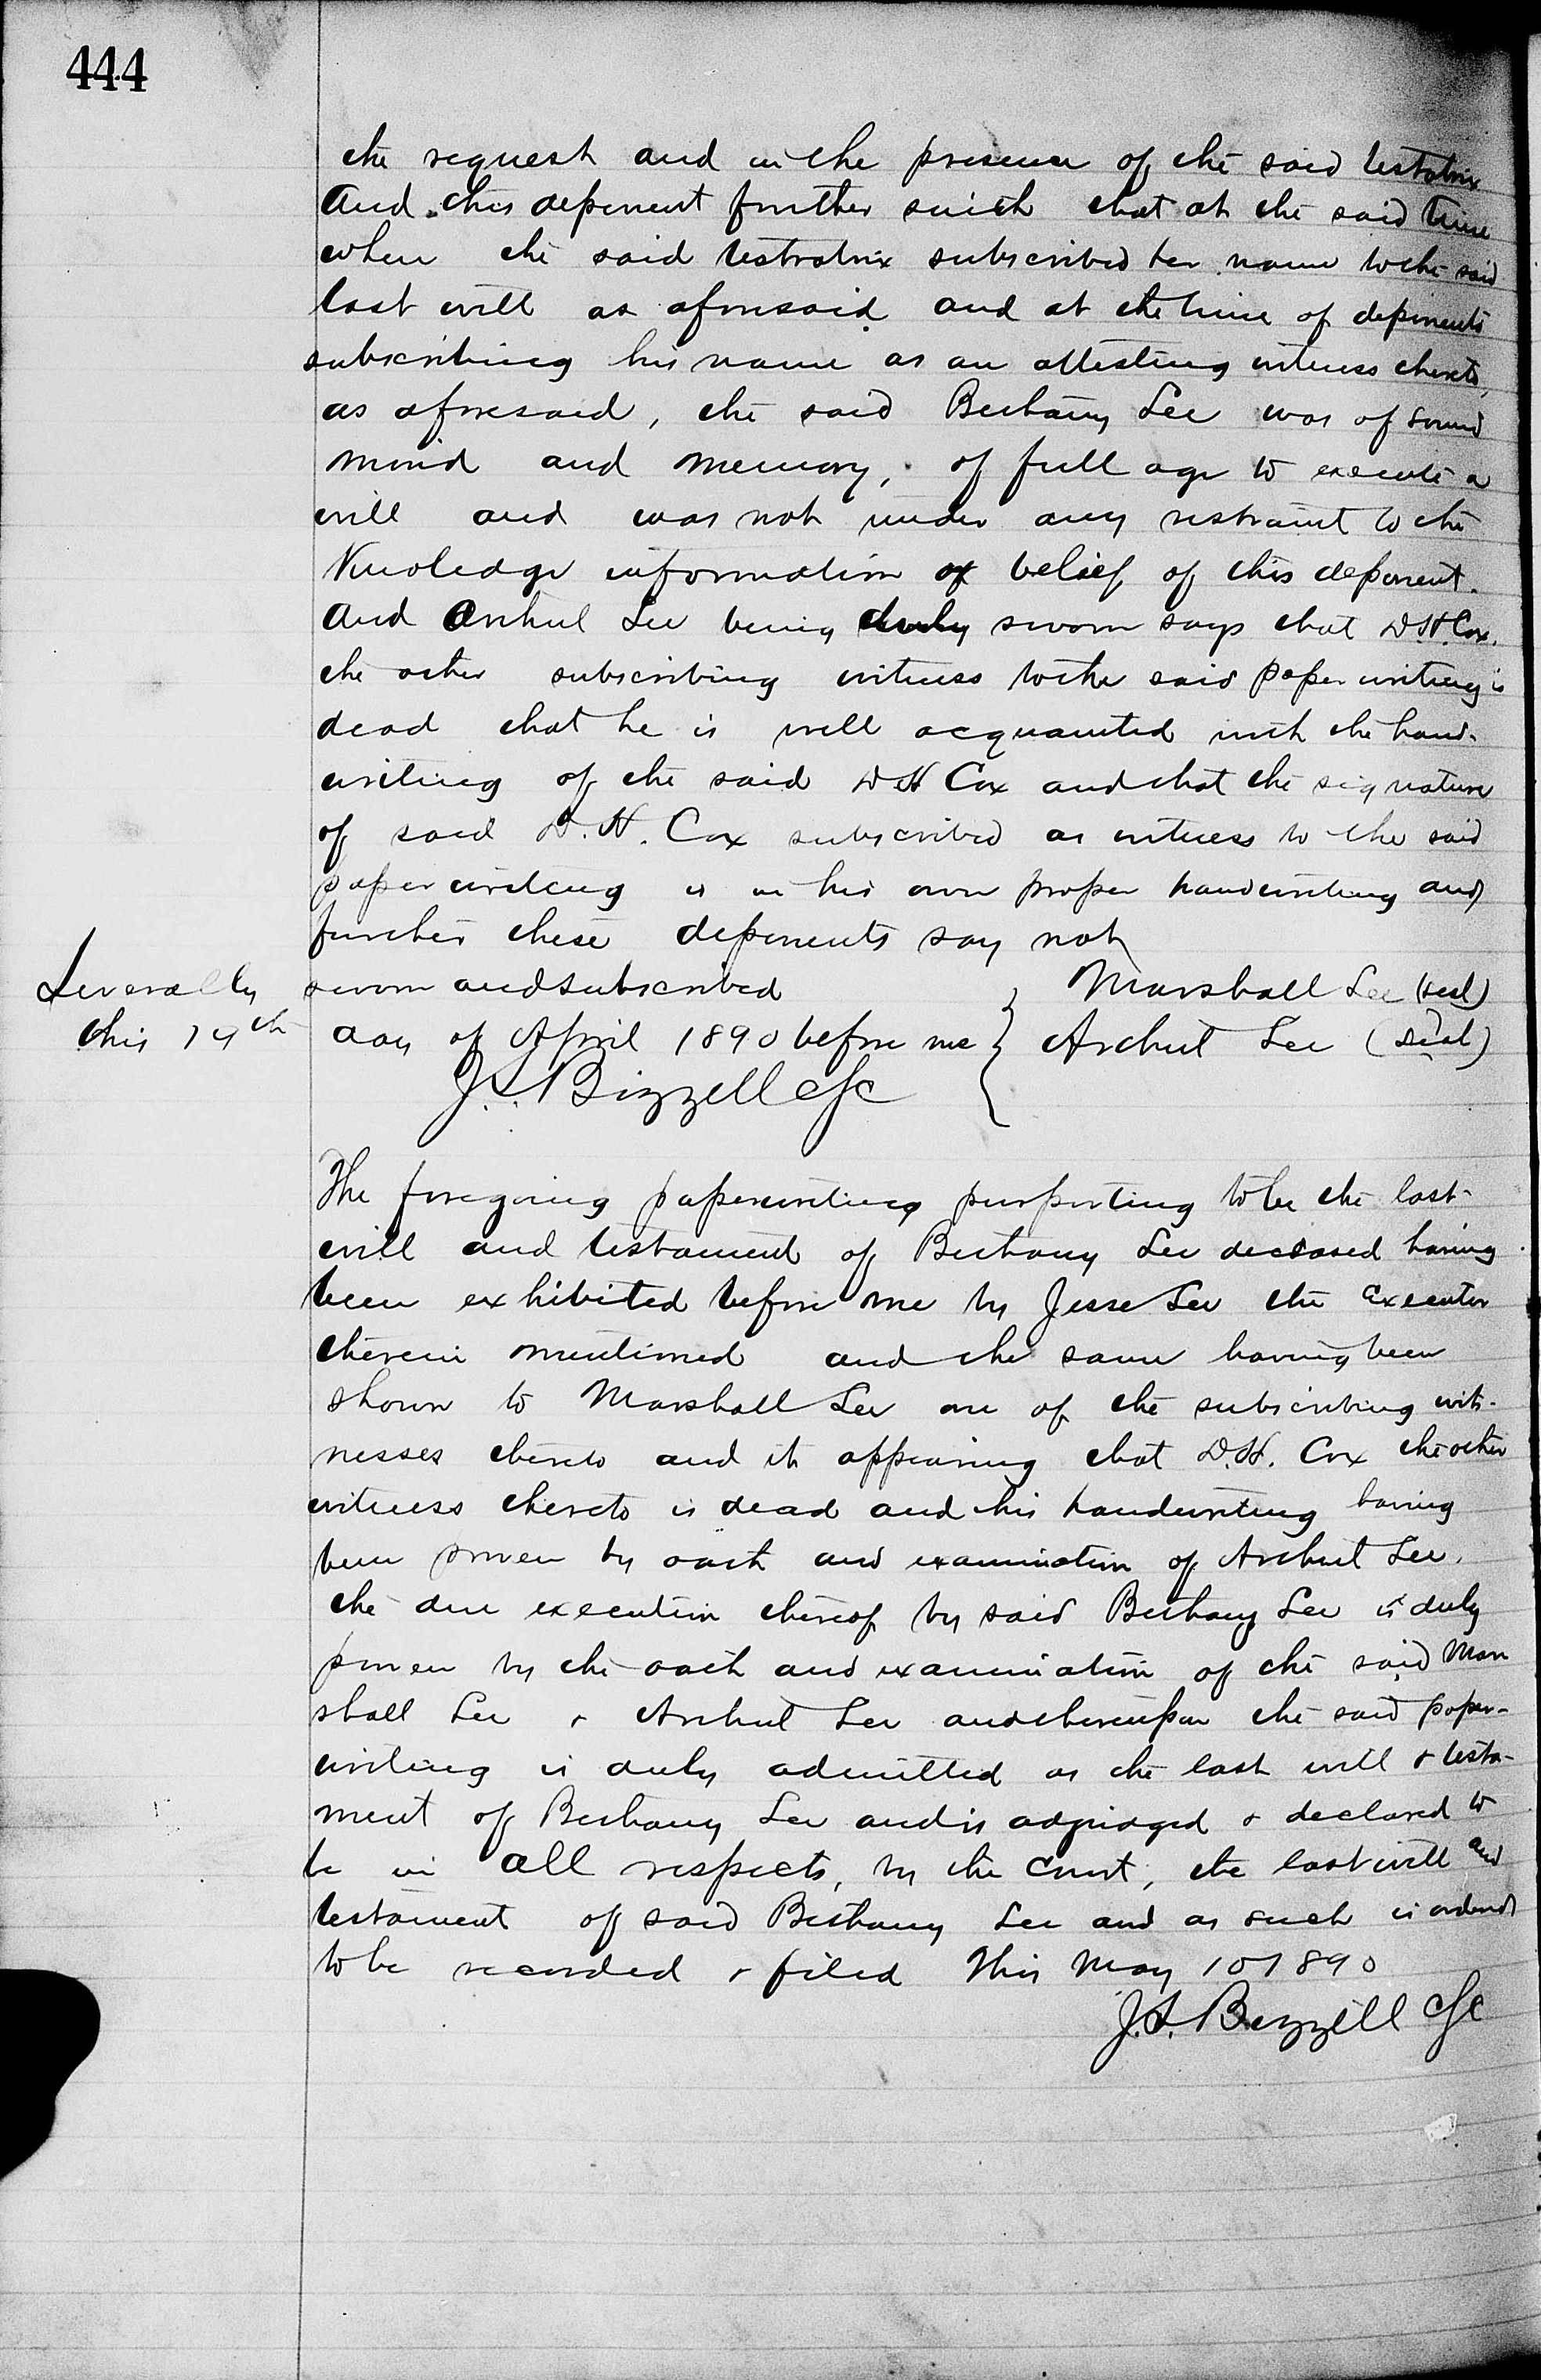 444
the request and in the presence of the said testatrix
And this deponent further saith that at the said time
when the said testatrix subscribed her name to the said
last will as aforesaid and at the time of deponents
subscribing his name as an attesting witness thereto,
as aforesaid, the said Bethany Lee was of sound
mind and memory, of full age to execute a
will and was not under any restraint to the
Knoledge information or belief of this deponent.
And Archut Lee being duly sworn says that D.H. Cox.
the other subscribing witness to the said paper writing is
dead that he is well acquainted with the hand-
writing of the said D H Cox and that the signature
of said D. H. Cox subscribed as witness to the said
paper writing is in his own proper handwriting and
further these deponents say not
Severally sworn and subscribed } Marshall Lee (seal)
this 19th day of April 1890 before me } Archut Lee (seal)
J.S. Bizzell CSC
The foregoing paperwriting purporting to be the last
will and testament of Bethany Lee deceased having
been exhibited before me by Jesse Lee the Executor
therein mentioned and the same having been
shown to Marshall Lee one of the subscribing wit-
nesses thereto and it appearing that D.H. Cox the other
witness thereto is dead and his handwriting having
been proven by oath and examination of Archut Lee.
the due execution thereof by said Bethany Lee is duly
proven by the oath and examination of the said Mar
shall Lee & Archut Lee and thereupon the said paper-
writing is duly admitted as the last will & testa-
ment of Bethany Lee and is adjudged & declared to
be in all respects, by the Court, the last will and
testament of said Bethany Lee and as such is ordered
to be recorded & filed This May 10 1890
J.S. Bizzell CSC